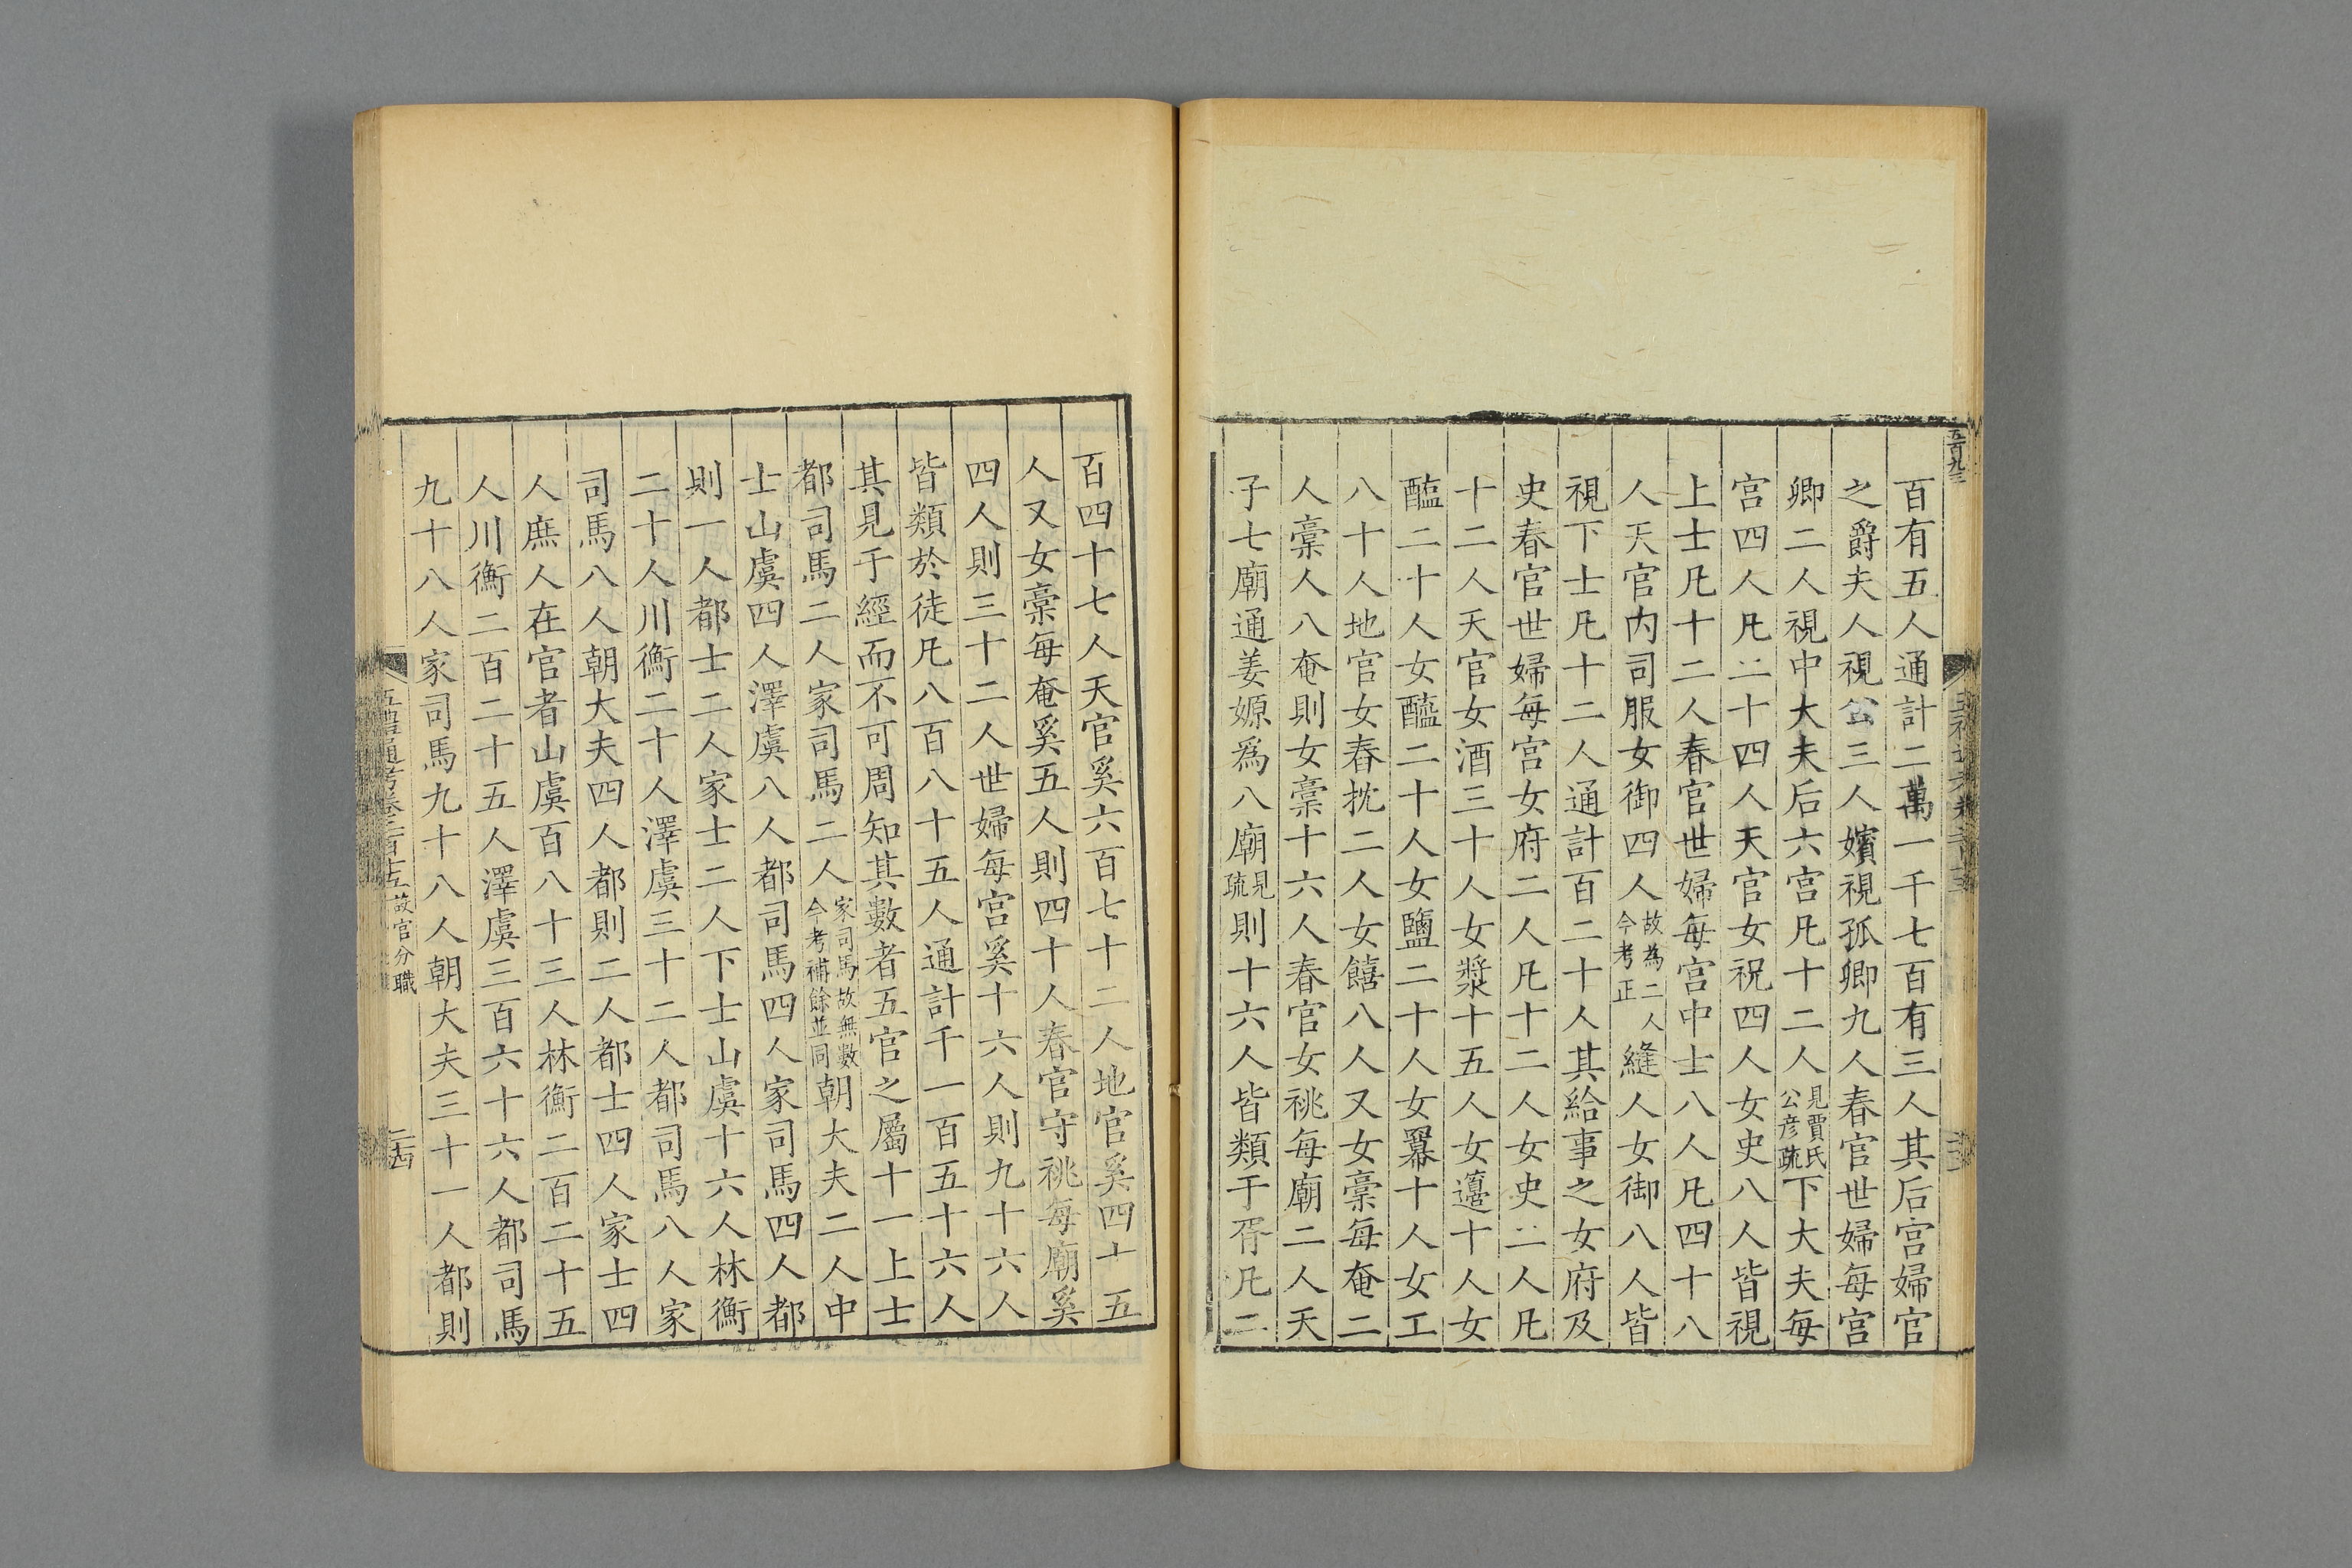 百有五人通計二萬一千七百有三人其后宮婦官
之爵夫人視公三人嬪視孤卿九人春官世婦每宮
卿二人視中大夫后六宮凡十二人見賈氏公彥疏下大夫每
宮四人凡二十四人天官女祝四人女史八人皆視
上士凡十二人春官世婦每宮中士八人凡四十八
人天官內司服女御四人故為二人今考正縫人女御八人皆
視下士凡十二人通計百二十人其給事之女府及
史春官世婦每宮女府二人凡十二人女史二人凡
十二人天官女酒三十人女漿十五人女籩十人女
醢二十人女醯二十人女鹽二十人女冪十人女工
八十人地官女舂抌二人女饎八人又女槀每奄二
人槀人八奄則女槀十六人春官女祧每廟二人天
子七廟通姜嫄爲八廟見疏則十六人皆類于胥凡二
百四十七人天官奚六百七十二人地官奚四十五
人又女槀每奄奚五人則四十人春官守祧每廟奚
四人則三十二人世婦每宮奚十六人則九十六人
皆類於徒凡八百八十五人通計千一百五十六人
其見于經而不可周知其數者五官之屬十一上士
都司馬二人家司馬二人家司馬故無數今考補餘並同朝大夫二人中
士山虞四人澤虞八人都司馬四人家司馬四人都
則一人都士二人家士二人下士山虞十六人林衡
二十人川衡二十人澤虞三十二人都司馬八人家
司馬八人朝大夫四人都則二人都士四人家士四
人庶人在官者山虞百八十三人林衡二百二十五
人川衡二百二十五人澤虞三百六十六人都司馬
九十八人家司馬九十八人朝大夫三十一人都則
五禮通考卷二百十五 設官分職
二十四